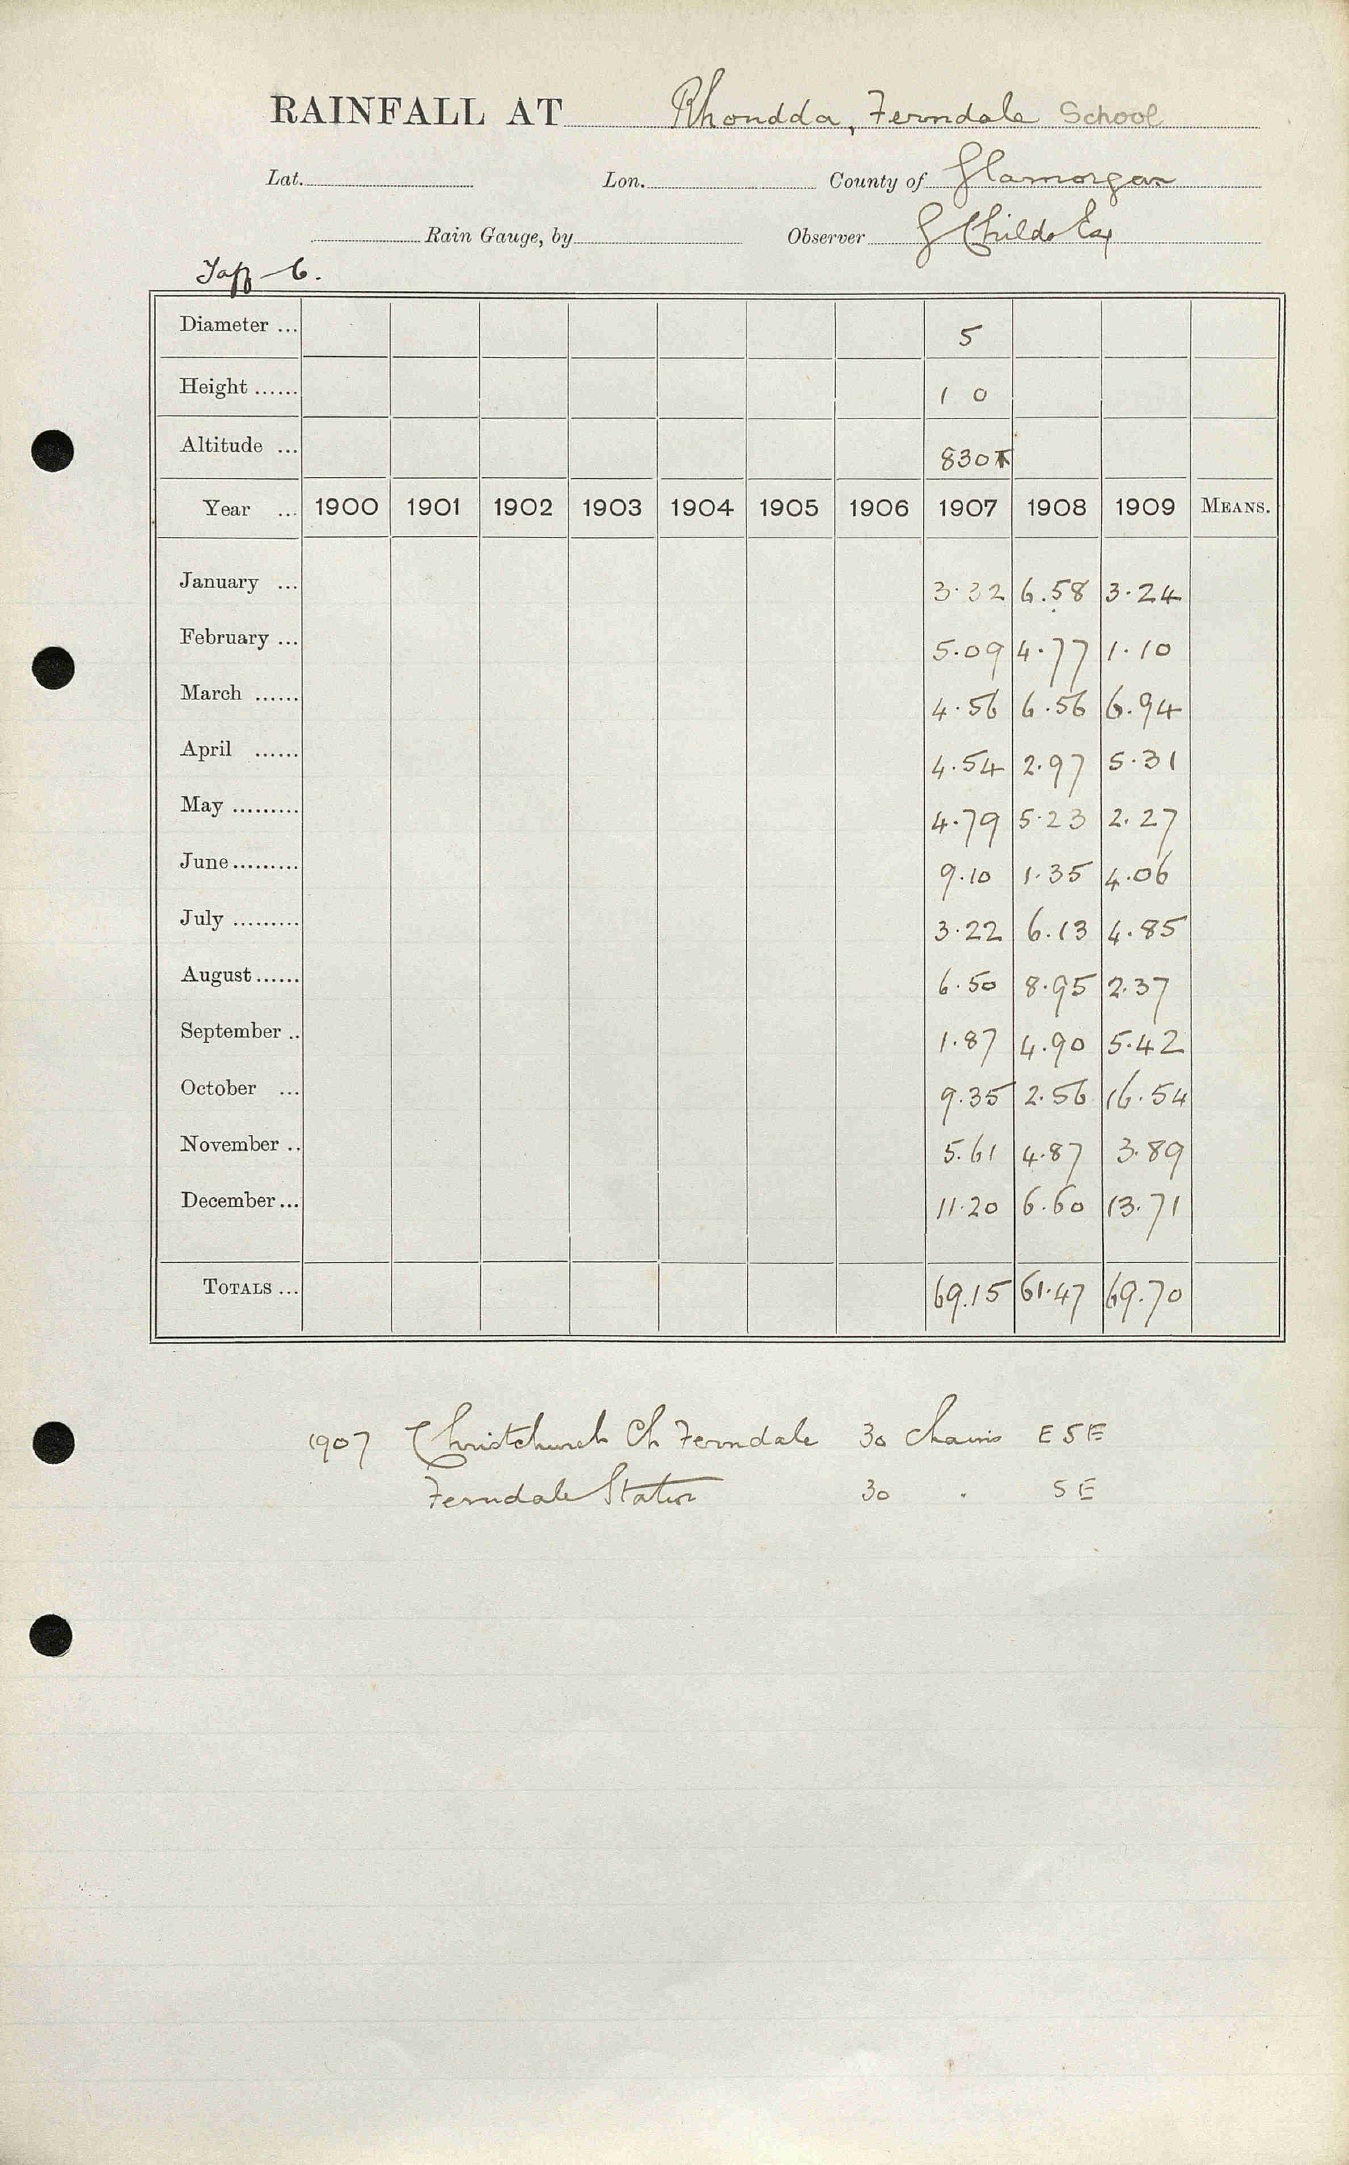 RAINFALL AT Rhondda, Ferndale School
Lat. Lon. County of Glamorgan
Rain Gauge, by Observer G Childs Esq
Taff – 6.
Diameter ... 5
Height ...... 1 0
Altitude ... 830T
Year ... 1900 1901 1902 1903 1904 1905 1906 1907 1908 1909 MEANS.
January ... 3.32 6.58 3.24
February ... 5.09 4.77 1.10
March ...... 4.56 6.56 6.94
April ...... 4.54 2.97 5.31
May ......... 4.79 5.23 2.27
June ......... 9.10 1.35 4.06
July ......... 3.22 6.13 4.85
August ...... 6.50 8.95 2.37
September .. 1.87 4.90 5.42
October ... 9.35 2.56 16.54
November .. 5.61 4.87 3.89
December ... 11.20 6.60 13.71
TOTALS ... 69.15 61.47 69.70
1907 Christchurch Ch Ferndale 30 chains ESE
Ferndale Station 30 . SE